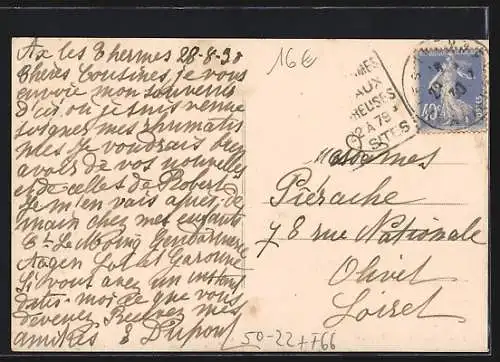 Ax les Thermes 28-8-30
Chères Cousines, je vous
envoie mon souvenir
d'ici ou je suis venue
soigner mes rhumatis
mes Je voudrais bien
avoir de vos nouvelles
et de celles de Robert
Je m'en vais après-de
main chez mes enfants
Gendarmerie
Agen Lot et Garonne
Si vous avez un instant
dites-moi ce que vous
devenez Recevez mes
amitiés E Dupont
16€
AUX
2 A 78
SITES
40c
Mesdames
Pierache
78 rue Nationale
Olivet
Loiret
50-22